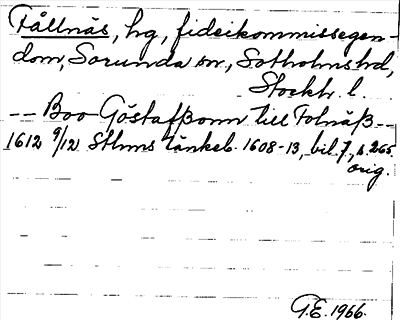 Fållnäs, hg, fideikommissegen-
dom, Sorunda sn, Sotholms hd,
Stockh. l.
-- Boo Göstafßonn till Folnäß --
1612 9/12 Sthms tänkeb. 1608-13, bil. 7, s. 265
orig.
G.E. 1966.